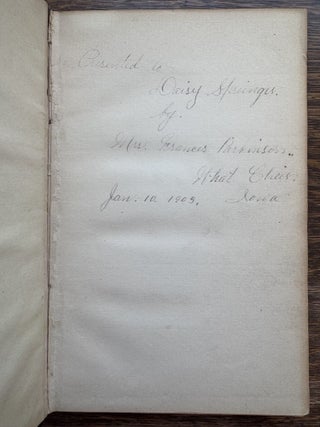 Presented to
Daisy Springer.
by.
Mrs. Frances Parkinson.
What Cheer.
Jan. 10 1909. Iowa